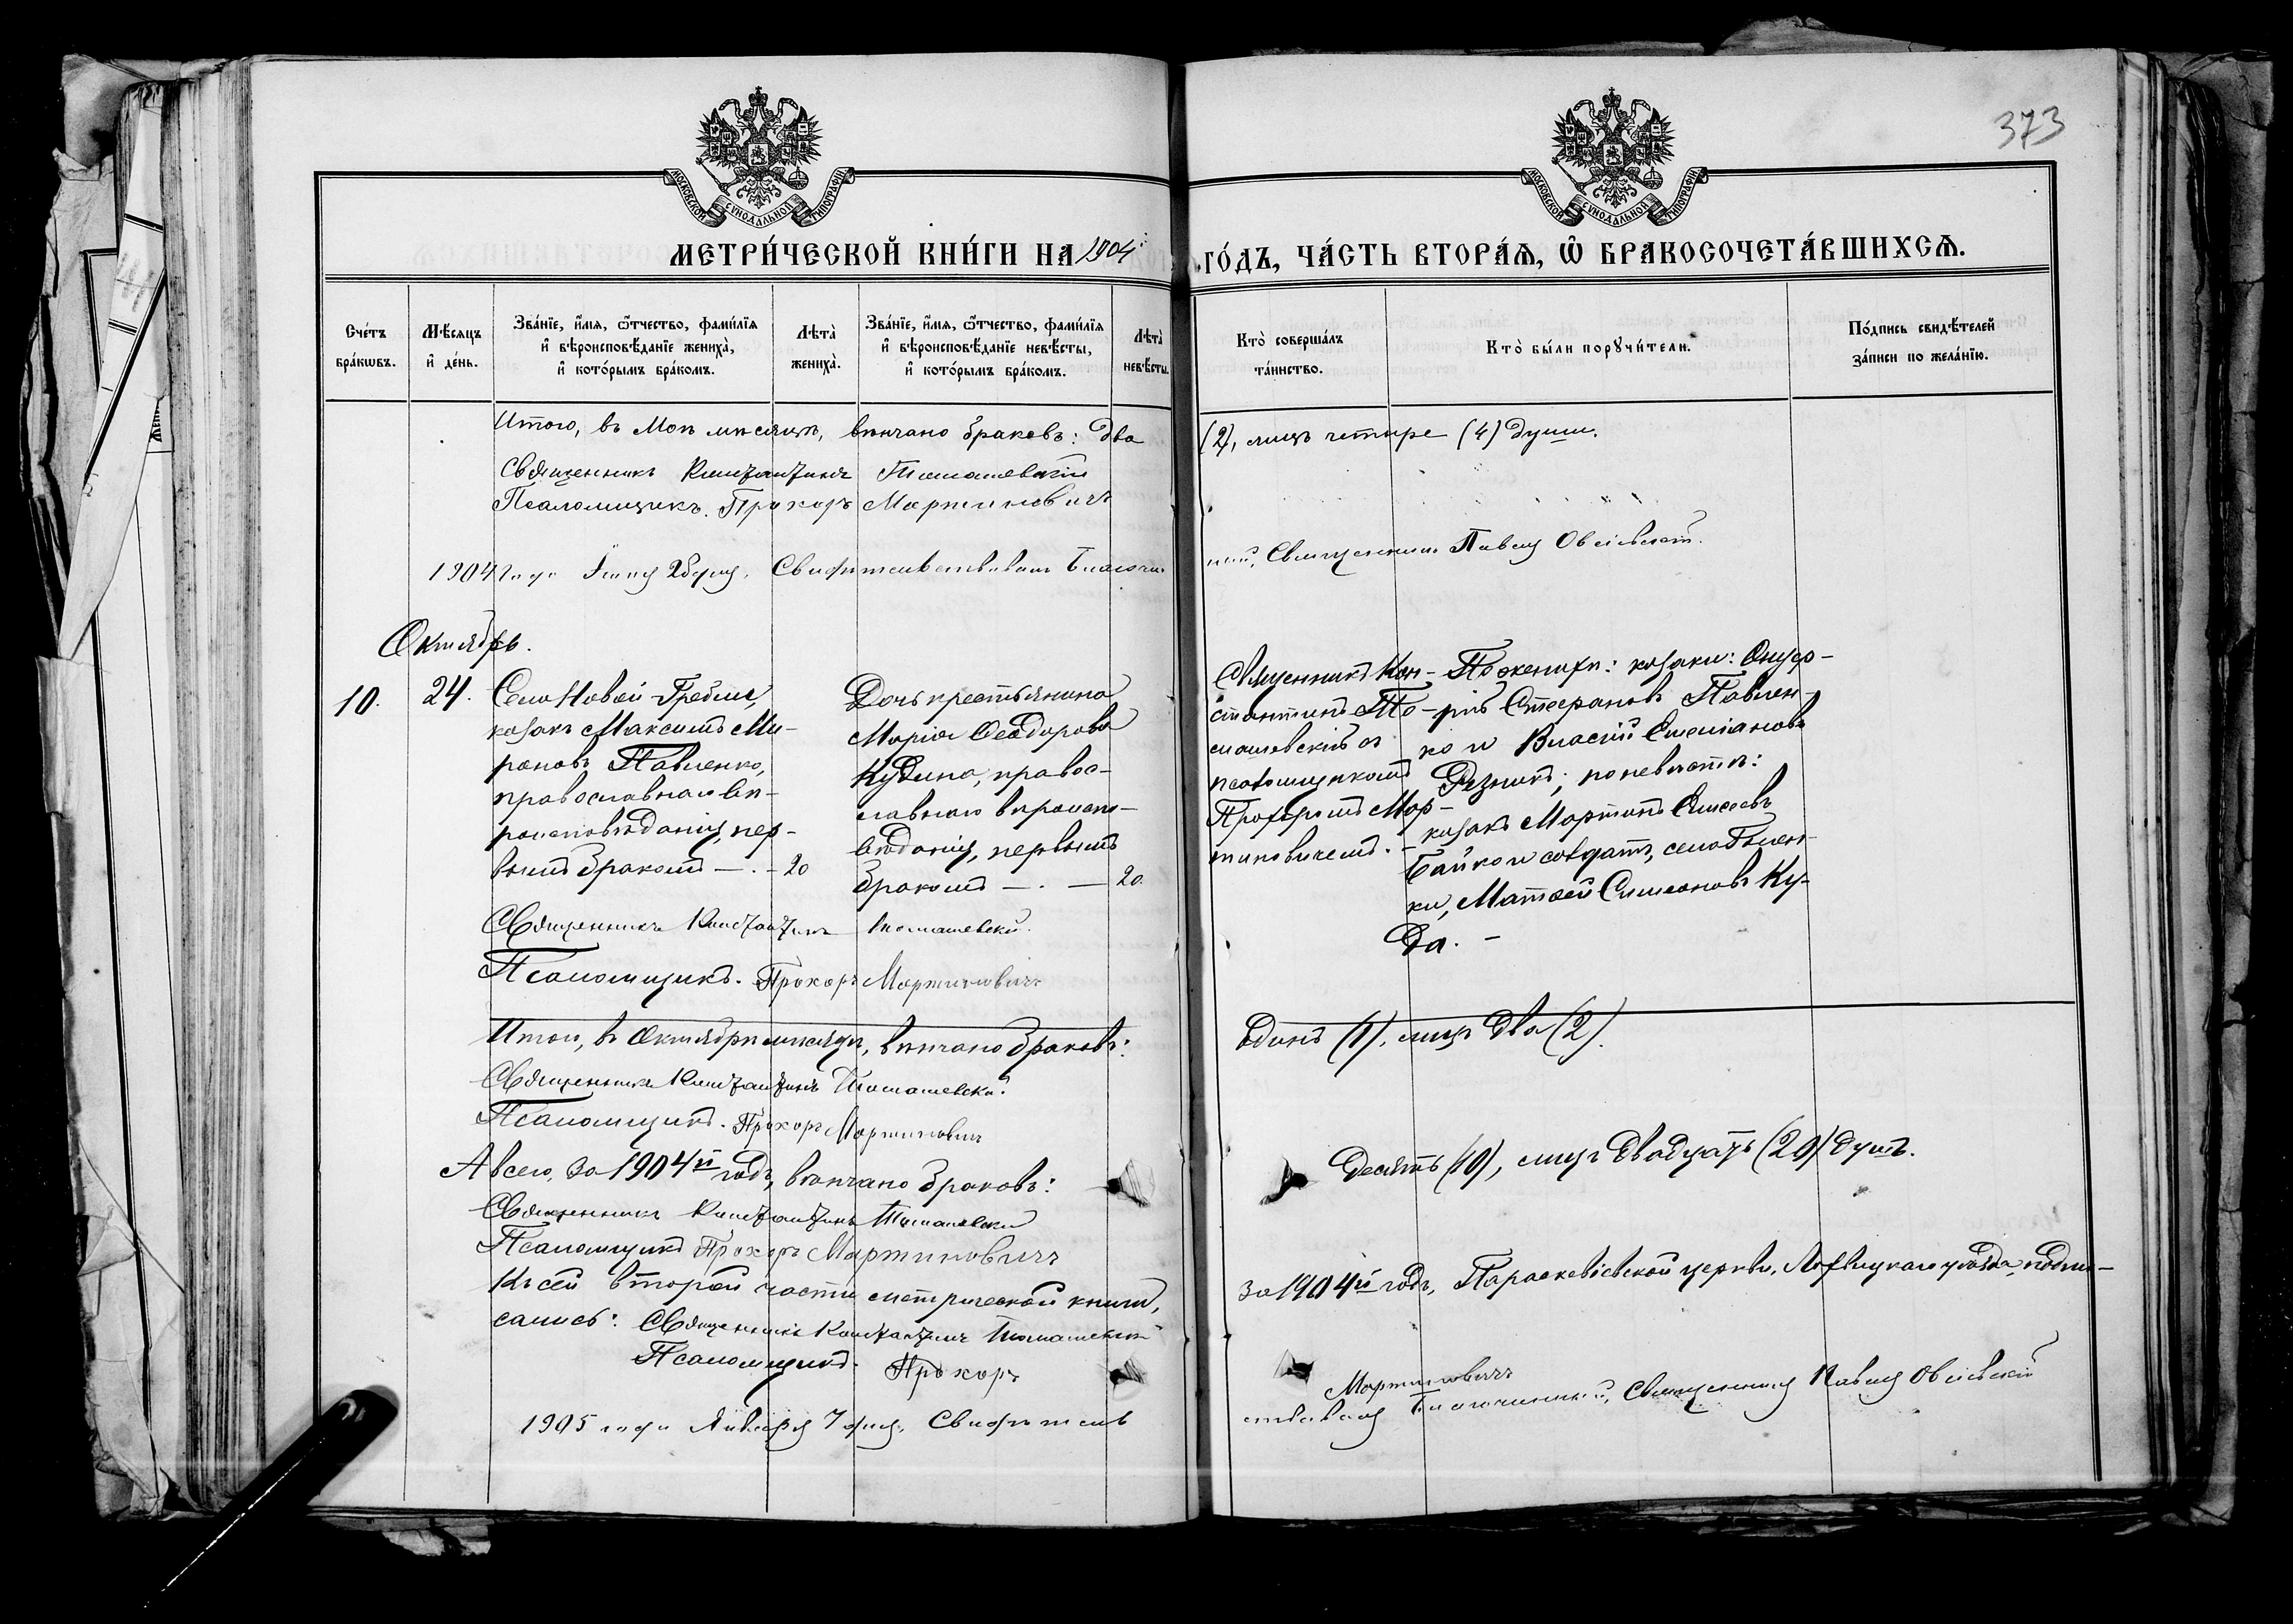 373
МОСКОВСКОЙ СѴНОДАЛЬНОЙ ТИПОГРАФІИ
МОСКОВСКОЙ СѴНОДАЛЬНОЙ ТИПОГРАФІИ
МЕТРИ́ЧЕСКОЙ КНИ́ГИ НА 1904 ГО́ДЪ, ЧА́СТЬ ВТОРА́Ѧ, Ѽ БРАКОСОЧЕТА́ВШИХСѦ.
Сче́тъ бра́кѡвъ.
Мѣ́сяцъ и҆ де́нь.
Зва́нїе, и҆́мѧ, ѻ҆́тчество, фами́лїѧ и҆ вѣроисповѣ́данїе жениха̀, и҆ кото́рымъ бра́комъ.
Лѣта̀ жениха̀.
Зва́нїе, и҆́мѧ, ѻ҆́тчество, фами́лїѧ и҆ вѣроисповѣ́данїе невѣ́сты, и҆ кото́рымъ бра́комъ.
Лѣта̀ невѣ́сты.
Кто̀ соверша́лъ та́инство.
Кто̀ бы́ли порꙋчи́тели.
По́дпись свидѣ́телей за́писи по жела́нїю.
Итого, въ Маѣ мѣсяцѣ, вѣнчано браковъ: два (2), лицъ четыре (4) души.
Священникъ Константинъ Томашевскій
Псаломщикъ. Прохоръ Мартиновичъ
1904 года Свидѣтельствовалъ Благочинный, Священникъ Павелъ
Октябрь.
10.
24.
Села Новой-Гребли,
козакъ Максимъ Ми-
роновъ Павленко,
православнаго вѣ-
роисповѣданія, пер-
вымъ бракомъ — . - 20
Дочь крестьянина
Марія Ѳеодорова
Кудина, правос-
лавнаго вѣроиспо-
вѣданія, первымъ
бракомъ — . — 20.
Священникъ Кон-
стантинъ То-
машевскій съ
псаломщикомъ
Прохоромъ Мар-
тиновичемъ. -
По женихѣ: козаки: Онуф-
рій Стефановъ Павлен-
ко и Власій Симеоновъ
Рѣзникъ; по невѣстѣ:
козакъ Мартинъ Елисеевъ
Байко и солдатъ, села
ки, Матѳей Симеоновъ Ку-
да. -
Священникъ Константинъ Томашевскій.
Псаломщикъ. Прохоръ Мартиновичъ
Итого, въ Октябрѣ мѣсяцѣ, вѣнчано браковъ: одинъ (1), лицъ два (2).
Священникъ Константинъ Томашевскій.
Псаломщикъ. Прохоръ Мартиновичъ
А всего, за 1904й годъ, вѣнчано браковъ: десять (10), лицъ двадцать (20) душъ.
Священникъ Константинъ Томашевскій
Псаломщикъ Прохоръ Мартиновичъ
Къ сей второй части метрической книги, за 1904й годъ, Параскевіевской церкви, Лохвицкаго уѣзда, подпи-
сались: Священникъ Константинъ Томашевскій
Псаломщикъ. Прохоръ Мартиновичъ
1905 года Января 7 дня, Свидѣтельствовалъ Благочинный, Священникъ Павелъ